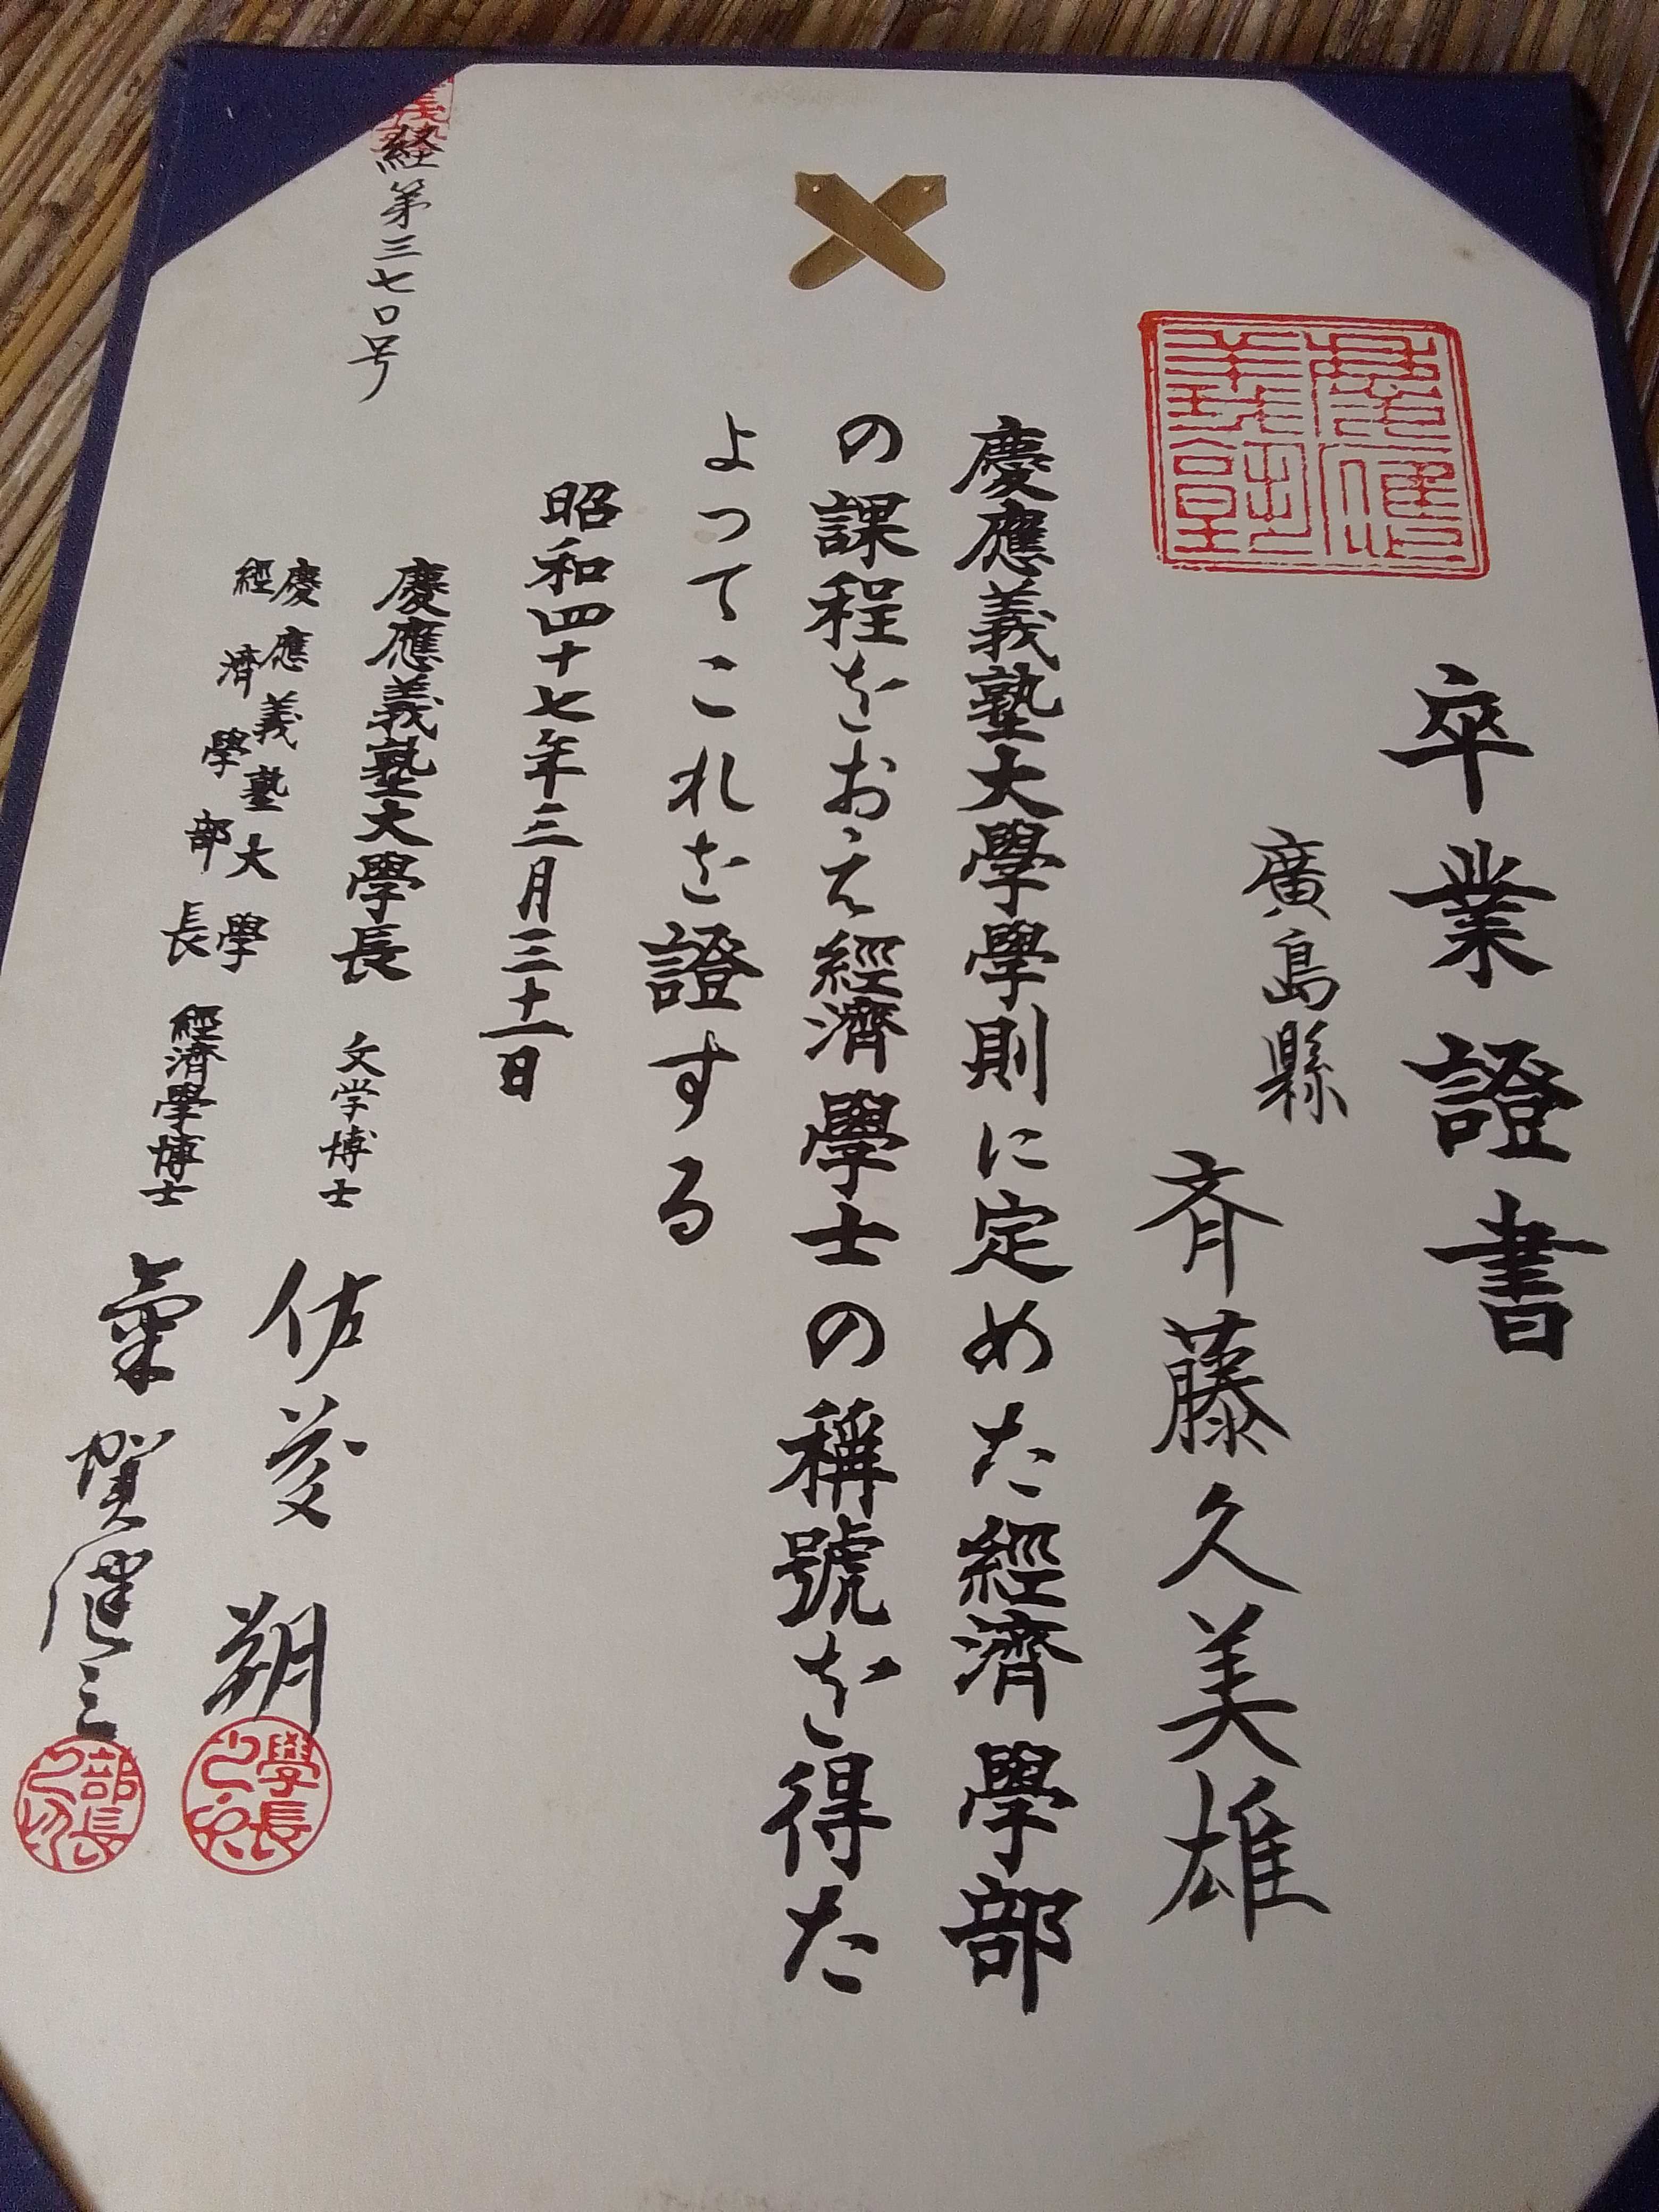 卒業證書
廣島縣
斉藤久美雄
慶應義塾大學學則に定めた經濟學部
の課程をおえ經濟學士の稱號を得た
よってこれを證する
昭和四十七年三月三十一日
慶應義塾大學長 文学博士 佐藤朔
慶應義塾大學
經濟學部長 經濟學博士 氣賀健三
経第三七〇号
慶應義塾
學長之印
部長之印